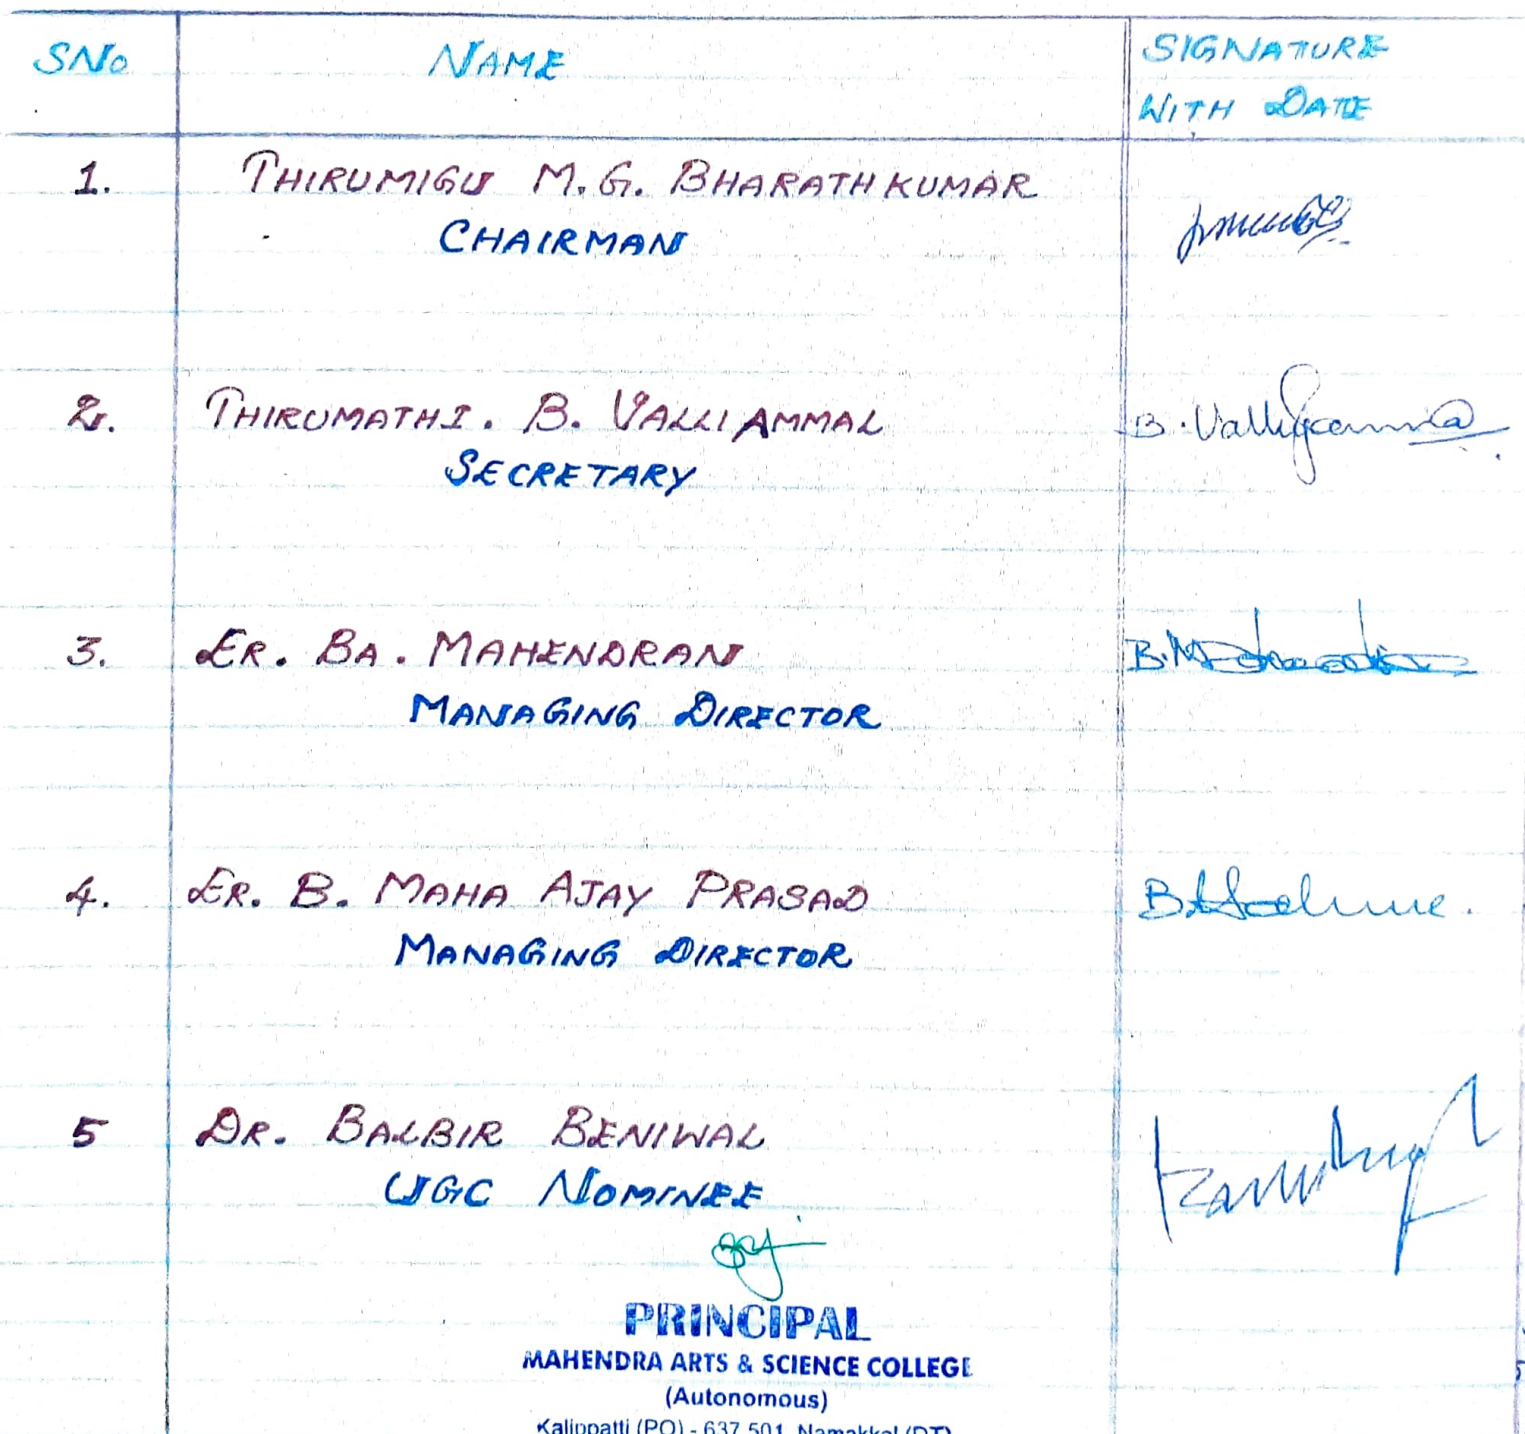 SNo NAME SIGNATURE
WITH DATE
1. THIRUMIGU M.G. BHARATHKUMAR
CHAIRMAN
2. THIRUMATHI. B. VALLIAMMAL B. Valliyamma
SECRETARY
3. ER. BA. MAHENDRAN B.M
MANAGING DIRECTOR
4. ER. B. MAHA AJAY PRASAD B.
MANAGING DIRECTOR
5 DR. BALBIR BENIWAL
UGC NOMINEE
PRINCIPAL
MAHENDRA ARTS & SCIENCE COLLEGE
(Autonomous)
Kalippatti (PO) - 637 501, Namakkal (DT)